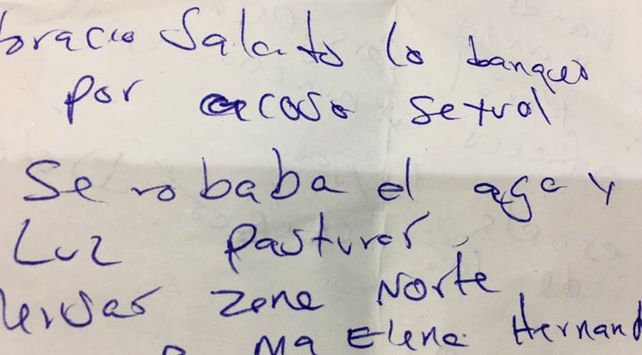 oracio Salcido lo banqueo
por acoso sexual
Se robaba el aga y
Luz Pasturas
Zona Norte
Ma Elena Hernand